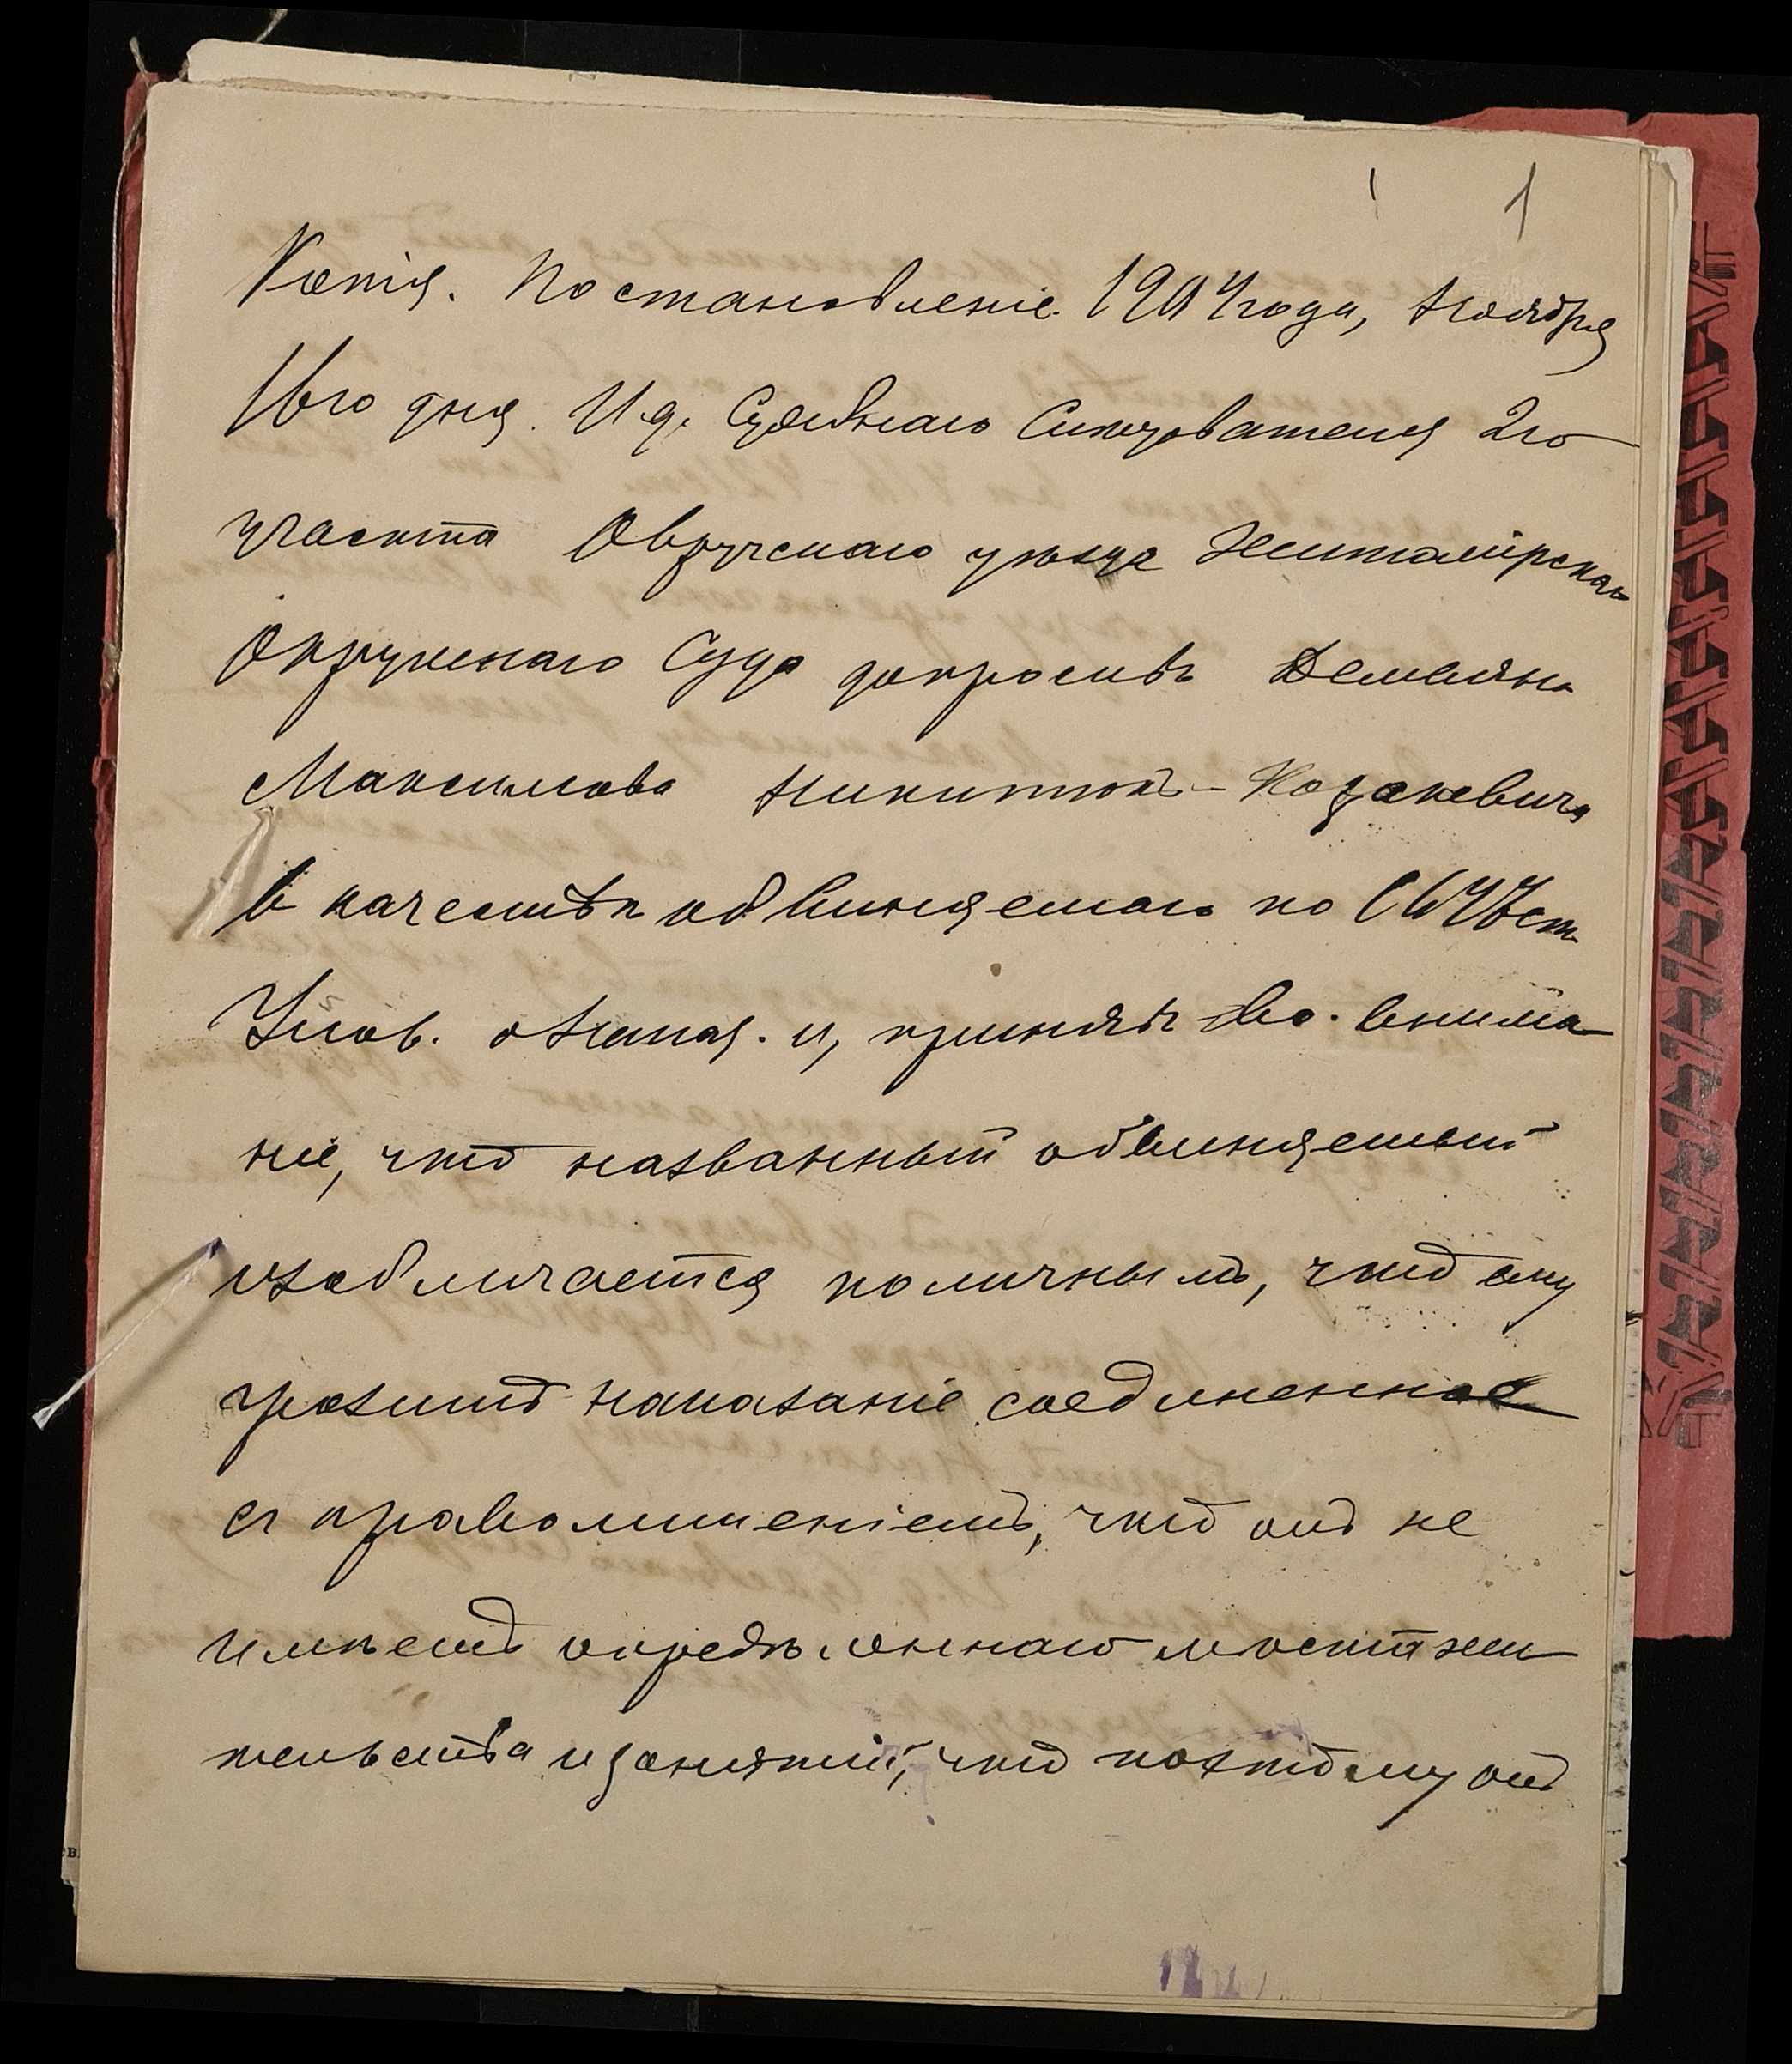 1
Копія. Постановленіе. 1904 года, Ноября
16го дня. И. д. Судебнаго Слѣдователя 2го
участка Овручскаго уѣзда Житомірскаго
Окружнаго Суда допросивъ Демьяна
Максимова Никитюкъ-Козакевича
въ качествѣ обвиняемаго по 1647 ст.
Улож. о Наказ. и, принявъ во внима-
ніе, что названный обвиняемый
изобличается поличнымъ, что ему
грозитъ наказаніе соединенное
съ праволишеніемъ, что онъ не
имѣетъ опредѣленнаго мѣста жи-
тельства и занятій, что поэтому онъ